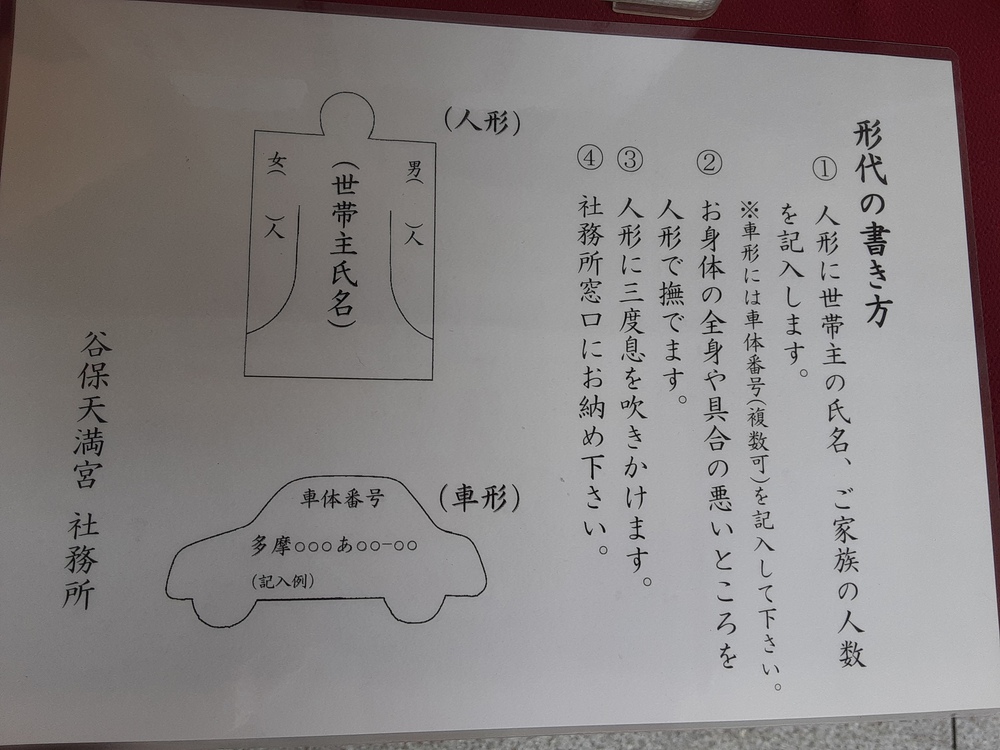 形代の書き方
① 人形に世帯主の氏名、ご家族の人数
を記入します。
※車形には車体番号(複数可)を記入して下さい。
② お身体の全身や具合の悪いところを
人形で撫でます。
③ 人形に三度息を吹きかけます。
④ 社務所窓口にお納め下さい。
(人形)
男( )人
(世帯主氏名)
女( )人
(車形)
車体番号
多摩○○○あ○○-○○
(記入例)
谷保天満宮 社務所